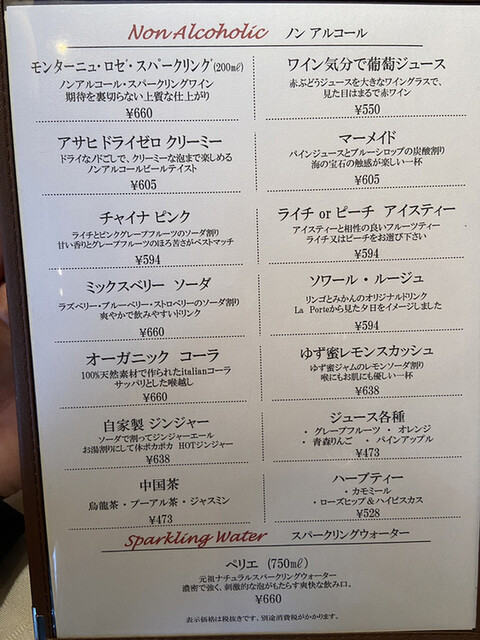 Non Alcoholic ノン アルコール
モンターニュ・ロゼ・スパークリング(200㎖)
ノンアルコール・スパークリングワイン
期待を裏切らない上質な仕上がり
¥660
ワイン気分で葡萄ジュース
赤ぶどうジュースを大きなワイングラスで、
見た目はまるで赤ワイン
¥550
アサヒ ドライゼロ クリーミー
ドライなノドごしで、クリーミーな泡まで楽しめる
ノンアルコールビールテイスト
¥605
マーメイド
パインジュースとブルーシロップの炭酸割り
海の宝石の触感が楽しい一杯
¥605
チャイナ ピンク
ライチとピンクグレープフルーツのソーダ割り
甘い香りとグレープフルーツのほろ苦さがベストマッチ
¥594
ライチ or ピーチ アイスティー
アイスティーと相性の良いフルーツティー
ライチ又はピーチをお選び下さい
¥594
ミックスベリー ソーダ
ラズベリー・ブルーベリー・ストロベリーのソーダ割り
爽やかで飲みやすいドリンク
¥660
ソワール・ルージュ
リンゴとみかんのオリジナルドリンク
La Porteから見た夕日をイメージしました
¥594
オーガニック コーラ
100%天然素材で作られたitalianコーラ
サッパリとした喉越し
¥660
ゆず蜜レモンスカッシュ
ゆず蜜ジャムのレモンソーダ割り
喉にもお肌にも優しい一杯
¥638
自家製 ジンジャー
ソーダで割ってジンジャーエール
お湯割りにして体ポカポカ HOTジンジャー
¥638
ジュース各種
・グレープフルーツ ・オレンジ
・青森りんご ・パインアップル
¥473
中国茶
烏龍茶・プーアル茶・ジャスミン
¥473
ハーブティー
・カモミール
・ローズヒップ&ハイビスカス
¥528
Sparkling Water スパークリングウォーター
ペリエ (750㎖)
元祖ナチュラルスパークリングウォーター
濃密で強く、刺激的な泡がもたらす爽快な飲み口。
¥660
表示価格は税抜きです、別途消費税がかかります。